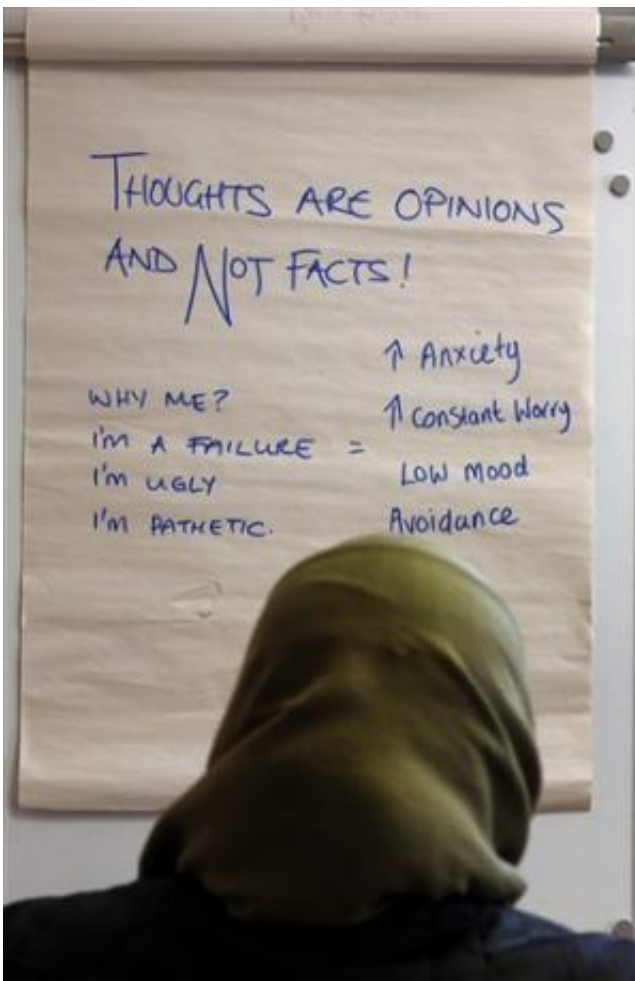 THOUGHTS ARE OPINIONS
AND NOT FACTS!
WHY ME?
I'M A FAILURE =
I'M UGLY
I'M PATHETIC.
↑ Anxiety
↑ Constant Worry
Low Mood
Avoidance